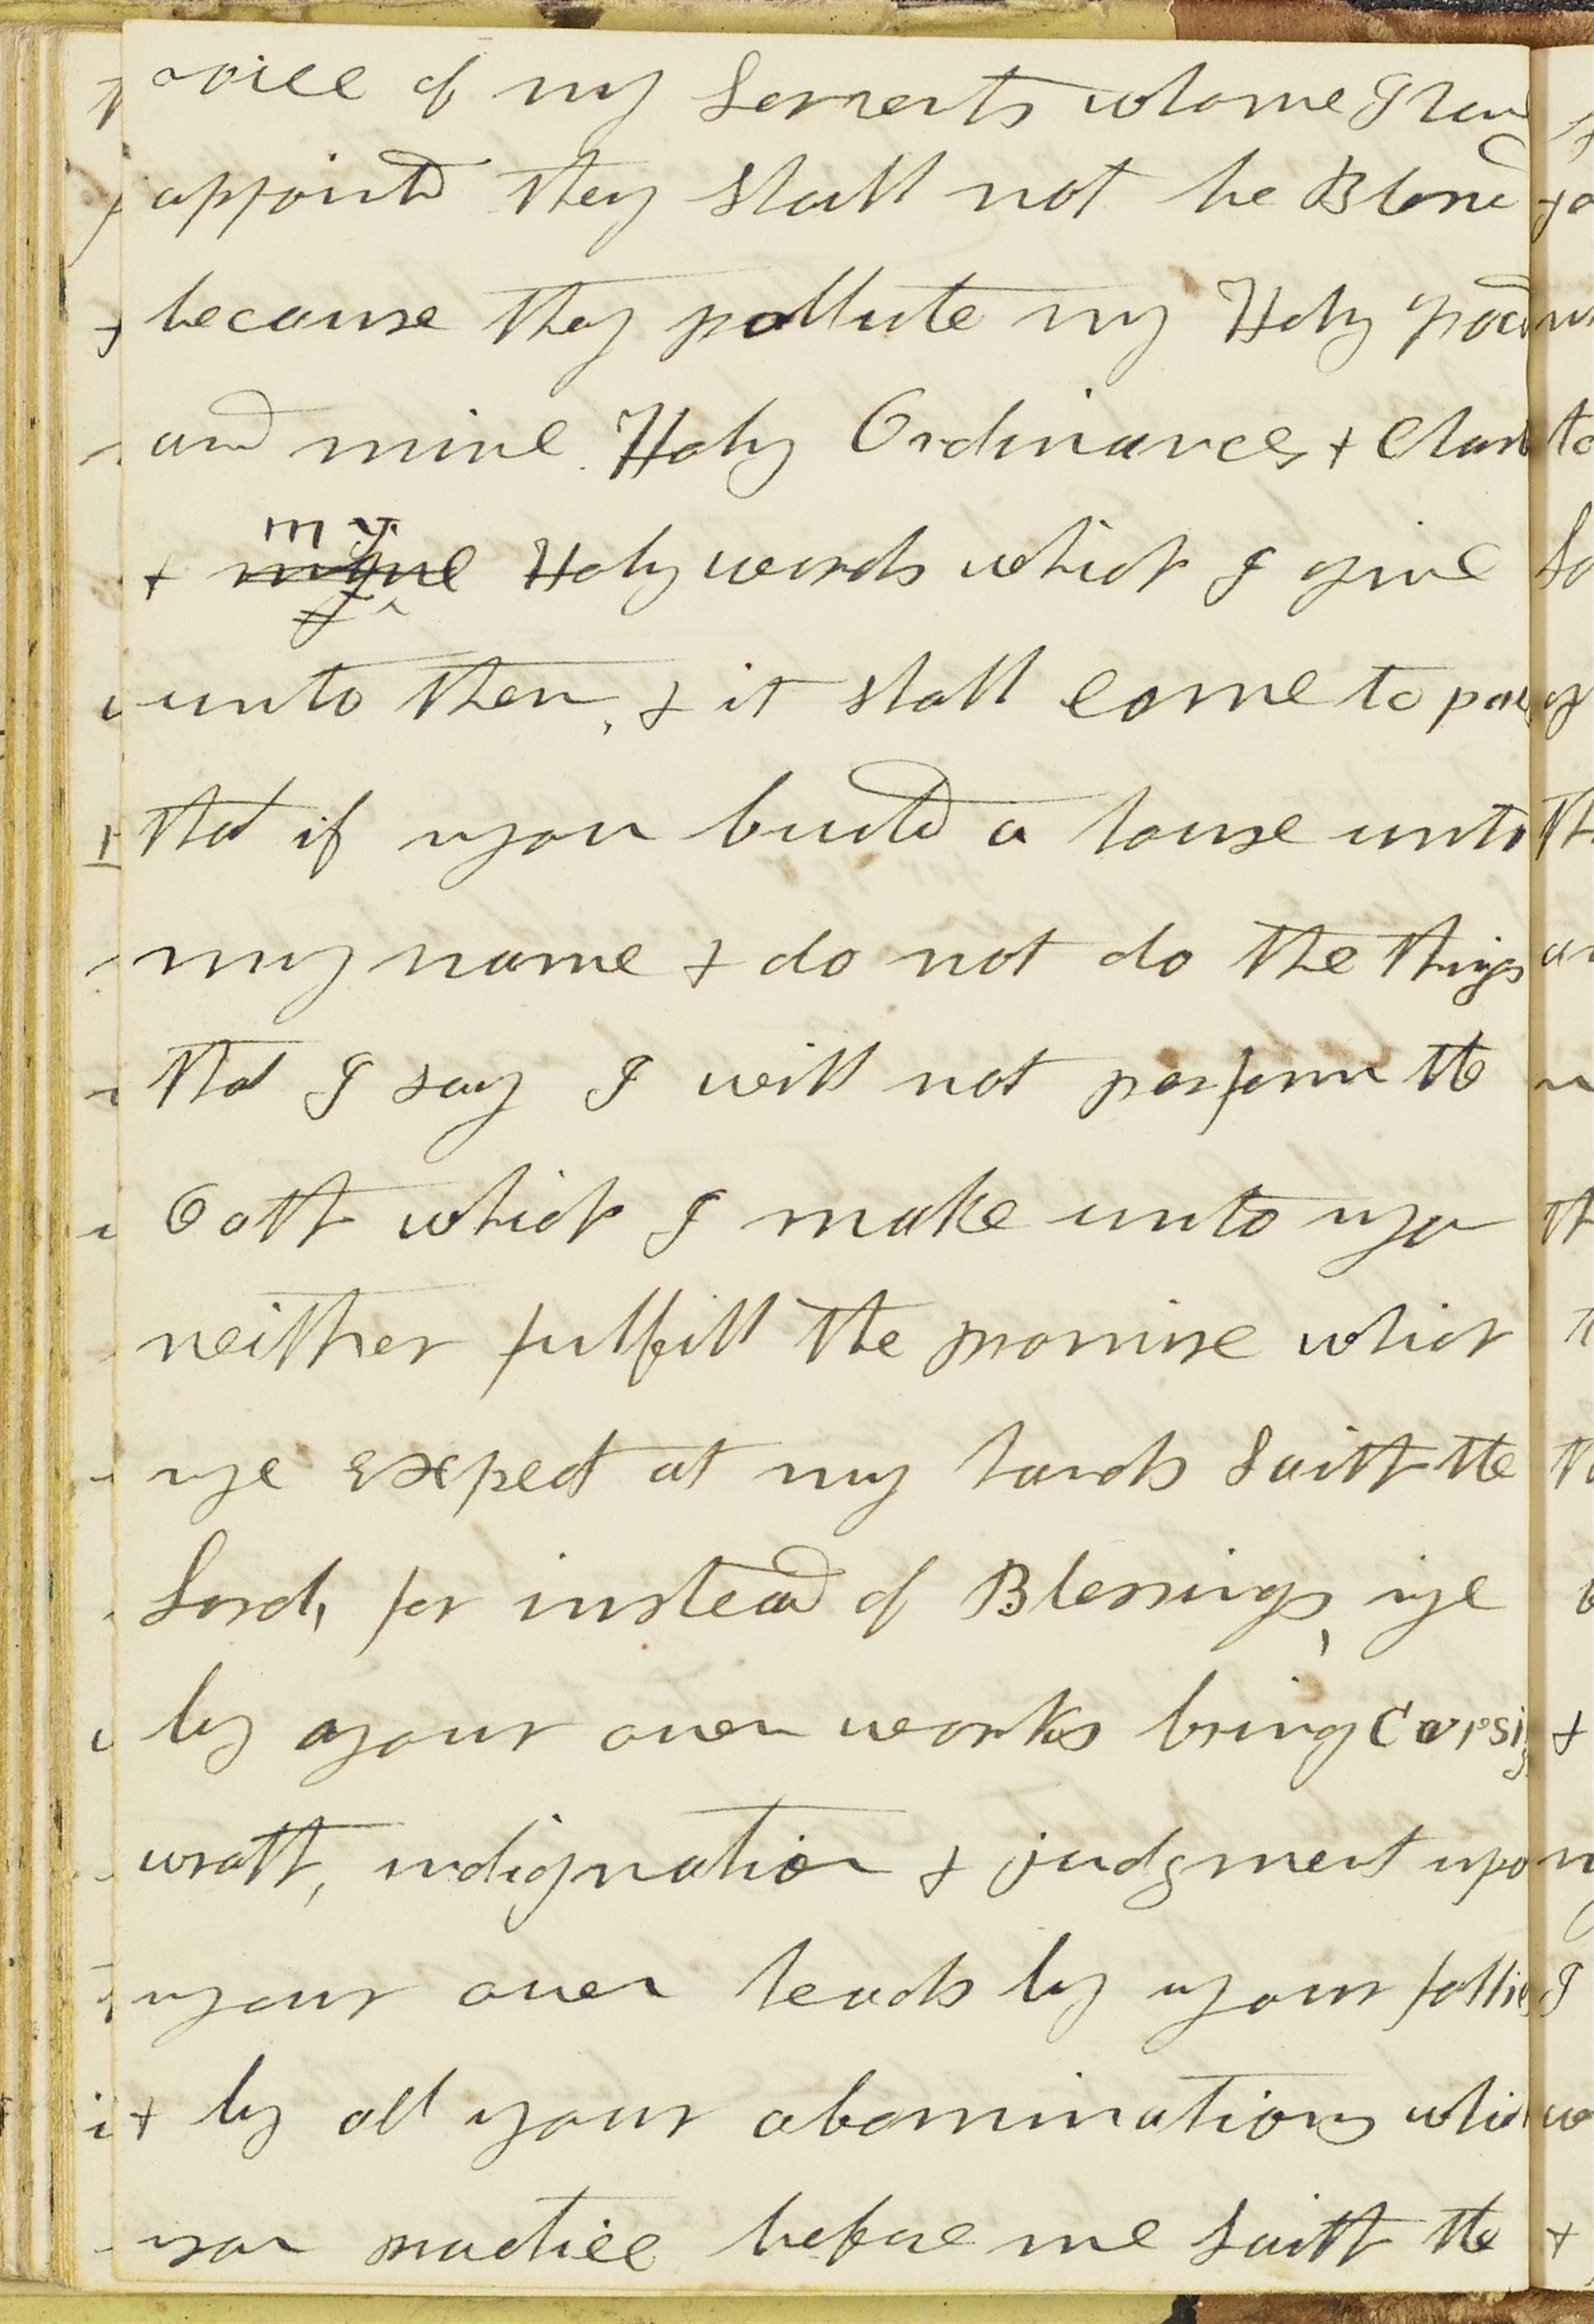 voice of my Servents whome I have
appointd they shall not be Blessd
because they pollute my Holy
and mine Holy Ordinances + Charter
+ my Holy words which I give
unto them, + it shall come to pass
that if you build a house unto
my name + do not do the things
that I say I will not perform the
Oath which I make unto you
neither fulfill the promise which
ye expect at my hands Saith the
Lord, for instead of Blessings, ye
by your own works bring Cursing
wrath, indignation + judgment upon
your own heads by your follies
+ by all your abominations which
you practice before me Saith the